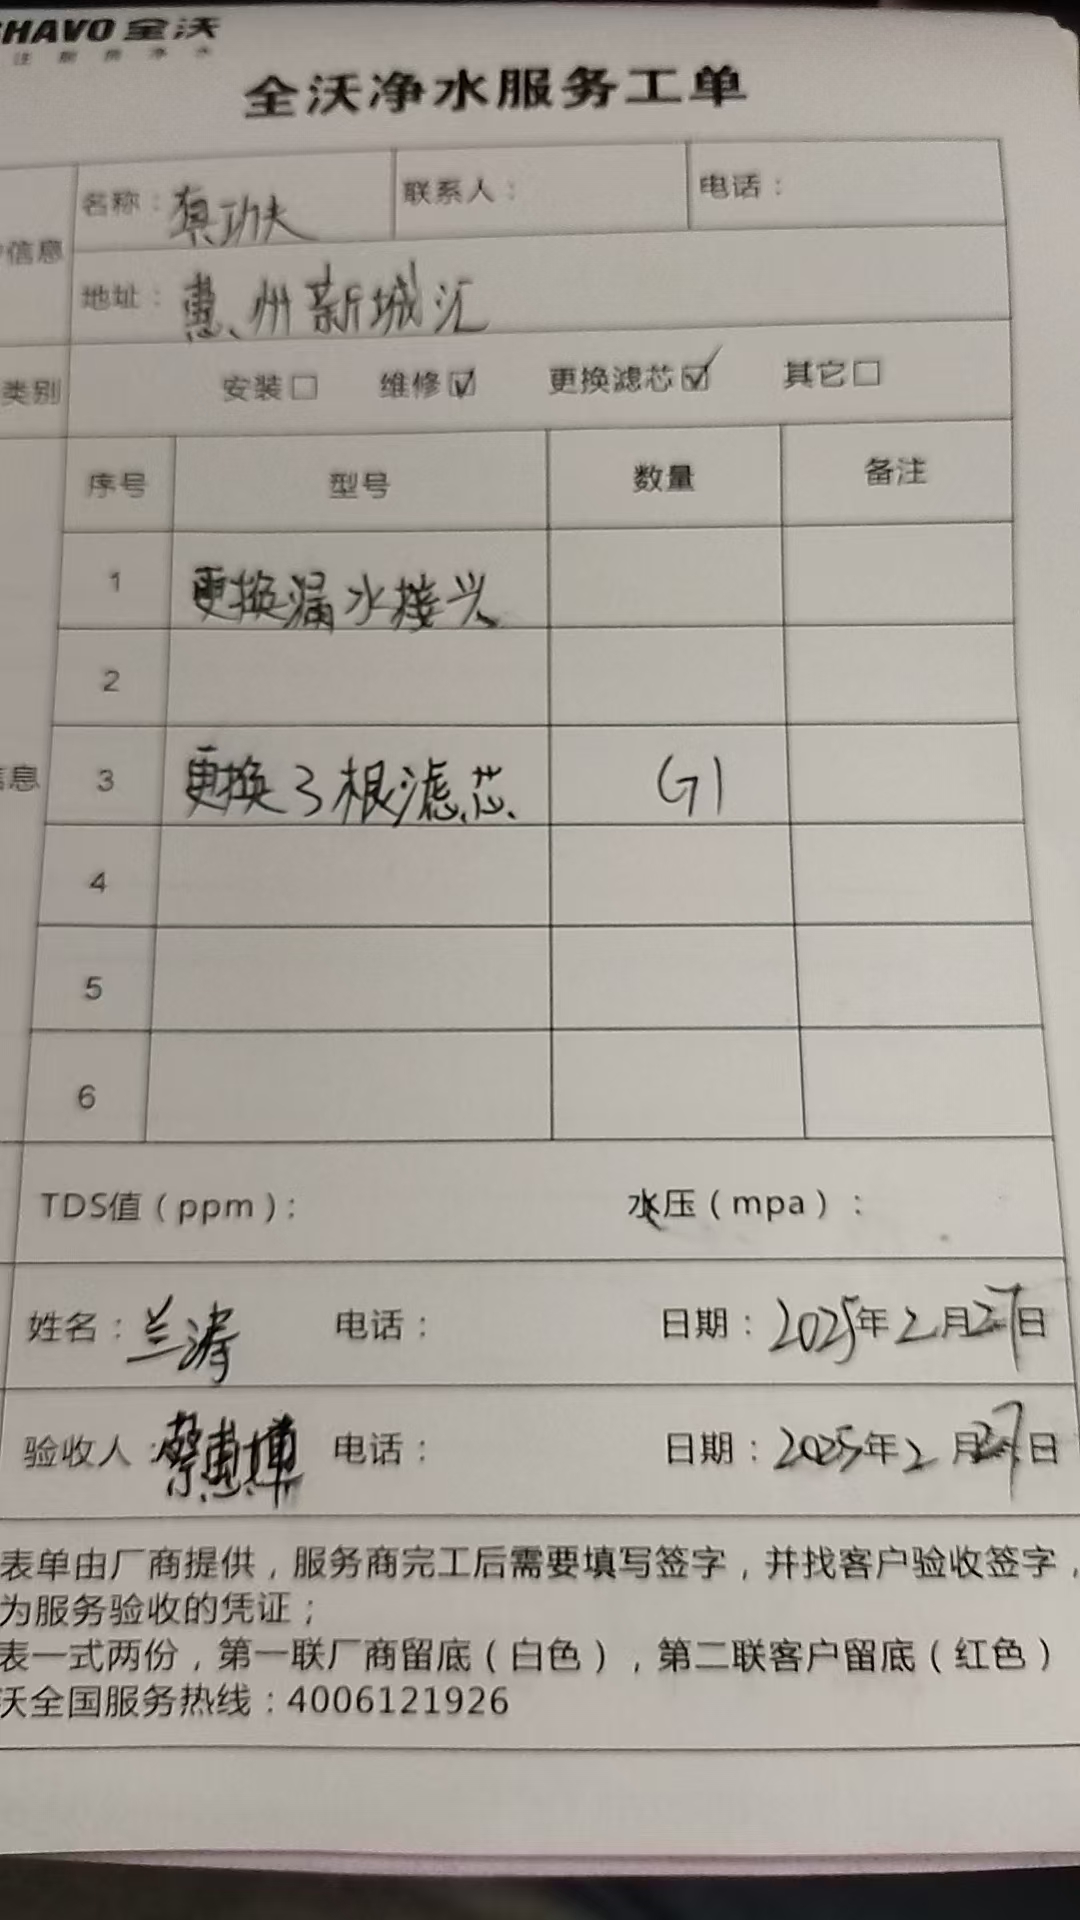 HAVO 全沃
注 厨 房 净 水
全沃净水服务工单
信息
名称：真功夫 联系人： 电话：
地址：惠州新城汇
类别 安装□ 维修☑ 更换滤芯☑ 其它□
序号 型号 数量 备注
1 更换漏水接头
2
息
3 更换3根滤芯 G1
4
5
6
TDS值（ppm）： 水压（mpa）：
姓名：兰涛 电话： 日期：2025年2月27日
验收人：蔡惠 电话： 日期：2025年2月27日
表单由厂商提供，服务商完工后需要填写签字，并找客户验收签字，
为服务验收的凭证；
表一式两份，第一联厂商留底（白色），第二联客户留底（红色）
沃全国服务热线：4006121926